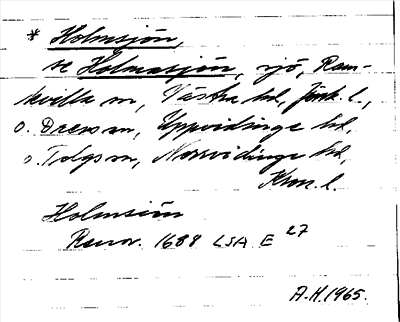 * Holmsjön,
se Holmasjön, sjö, Ram-
kvilla sn, Västra hd, Jönk. l.,
o. Drevs sn, Uppvidinge hd,
o. Tolgs sn, Norrvidinge hd,
Kron. l.
Holmsiön
Renov. 1688 LSA E 27
A.H. 1965.